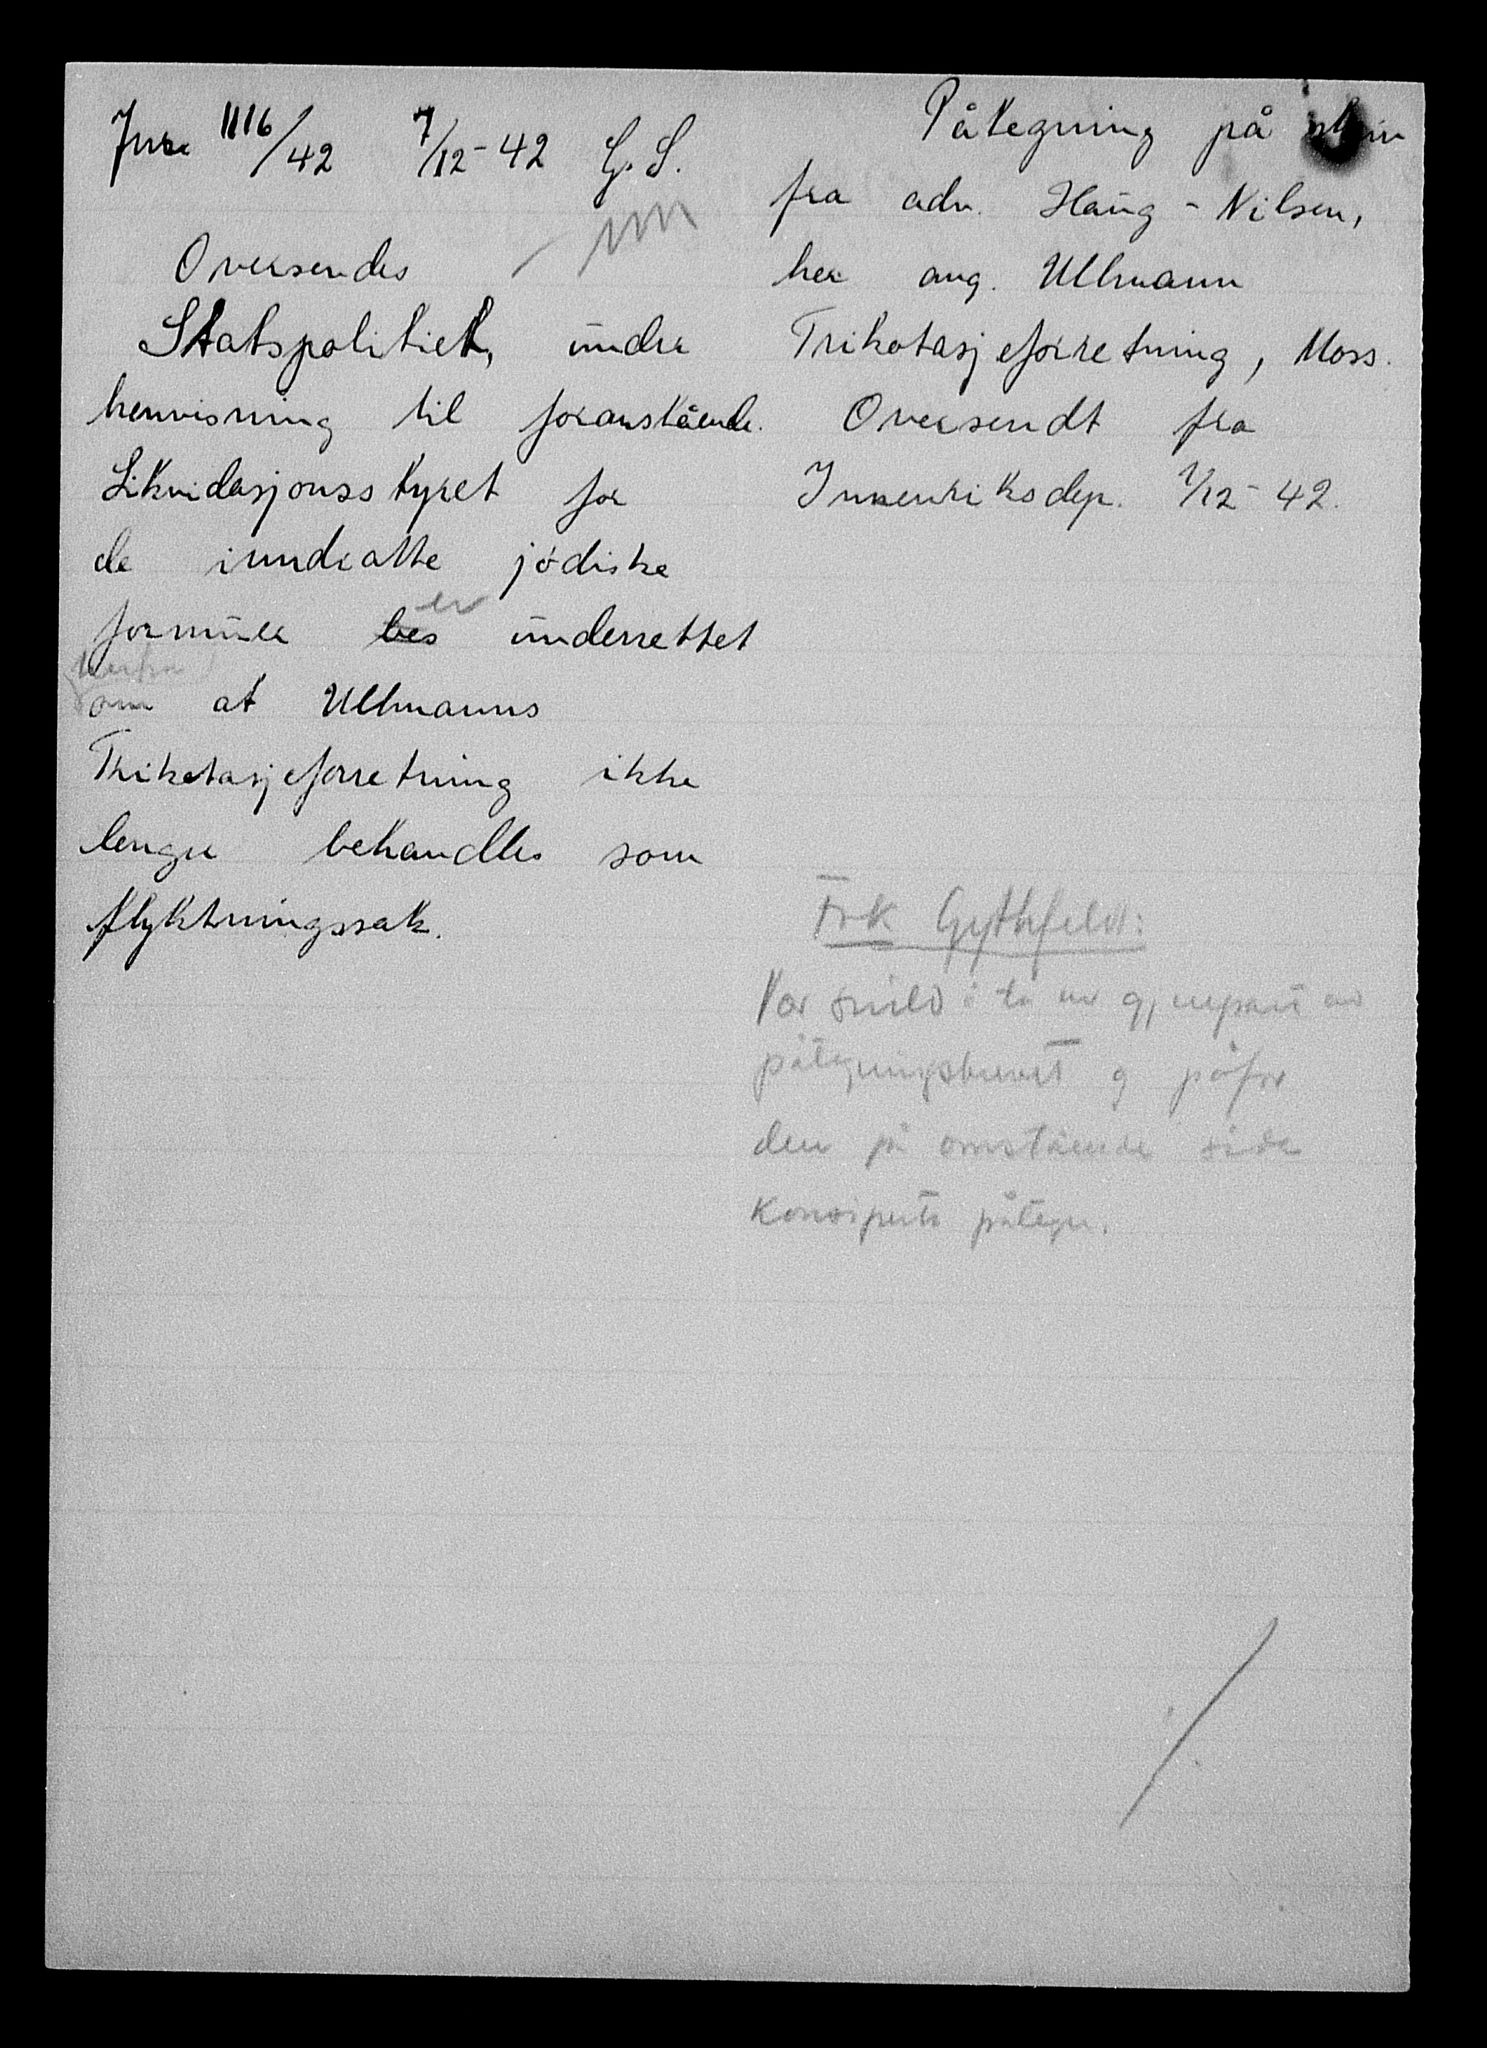 Jnr. 1116/42 7/12-42 G.S.
Oversendes
Statspolitiet, under
henvisning til foranstående.
Likvidasjonsstyret for
de inndratte jödiske
formuer bes er underrettet
herfra
om at Ullmanns
Trikotasjeforretning ikke
lenger behandles som
flyktningssak.
Påtegning på skriv
fra adv. Haug-Nilsen,
her ang. Ullmann
Trikotasjeforretning, Moss.
Oversendt fra
Innenriksdep. 1/12-42.
Frk Gythfeldt:
Vær snild å ta en gjenpart av
påtegningsbrevet og påfør
den på omstående side
konsiperte påtegn.